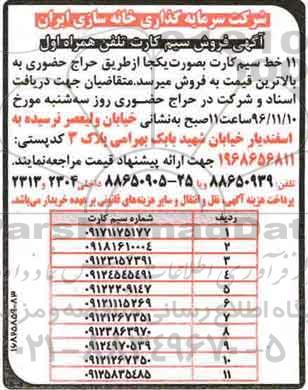 شرکت سرمایه گذاری خانه سازی ایران
آگهی فروش سیم کارت تلفن همراه اول
۱۱ خط سیم کارت بصورت یکجا از طریق حراج حضوری به
بالاترین قیمت به فروش میرسد. متقاضیان جهت دریافت
اسناد و شرکت در حراج حضوری روز سه‌شنبه مورخ
۹۶/۱۱/۱۰ ساعت ۱۱ صبح به نشانی خیابان ولیعصر نرسیده به
اسفندیار خیابان شهید بابک بهرامی پلاک ۳ کدپستی:
۱۹۶۸۶۵۶۸۱۱ جهت ارائه پیشنهاد قیمت مراجعه نمایند.
تلفن: ۸۸۶۵۰۹۳۹ و یا ۲۵-۸۸۶۵۰۹۰۵ داخلی ۲۳۰۴ و ۲۳۱۳
پرداخت هزینه آگهی، نقل و انتقال و سایر هزینه‌های قانونی بر عهده خریدار می‌باشد.
ردیف شماره سیم کارت
۱ ۰۹۱۷۱۱۲۵۱۷۷
۲ ۰۹۱۸۱۶۱۰۰۰۴
۳ ۰۹۱۲۳۱۵۷۳۹۱
۴ ۰۹۱۲۴۵۴۵۴۹۱
۵ ۰۹۱۲۲۲۰۹۱۴۷
۶ ۰۹۱۲۱۱۱۵۲۶۹
۷ ۰۹۱۲۱۲۶۷۳۵۱
۸ ۰۹۱۲۳۸۶۳۹۷۰
۹ ۰۹۱۲۴۹۲۰۵۳۹
۱۰ ۰۹۱۲۱۲۶۷۳۵۰
۱۱ ۰۹۱۲۵۸۳۵۴۸۵
۰۲۱-۸۸۳۴۹۶۷۰-۵